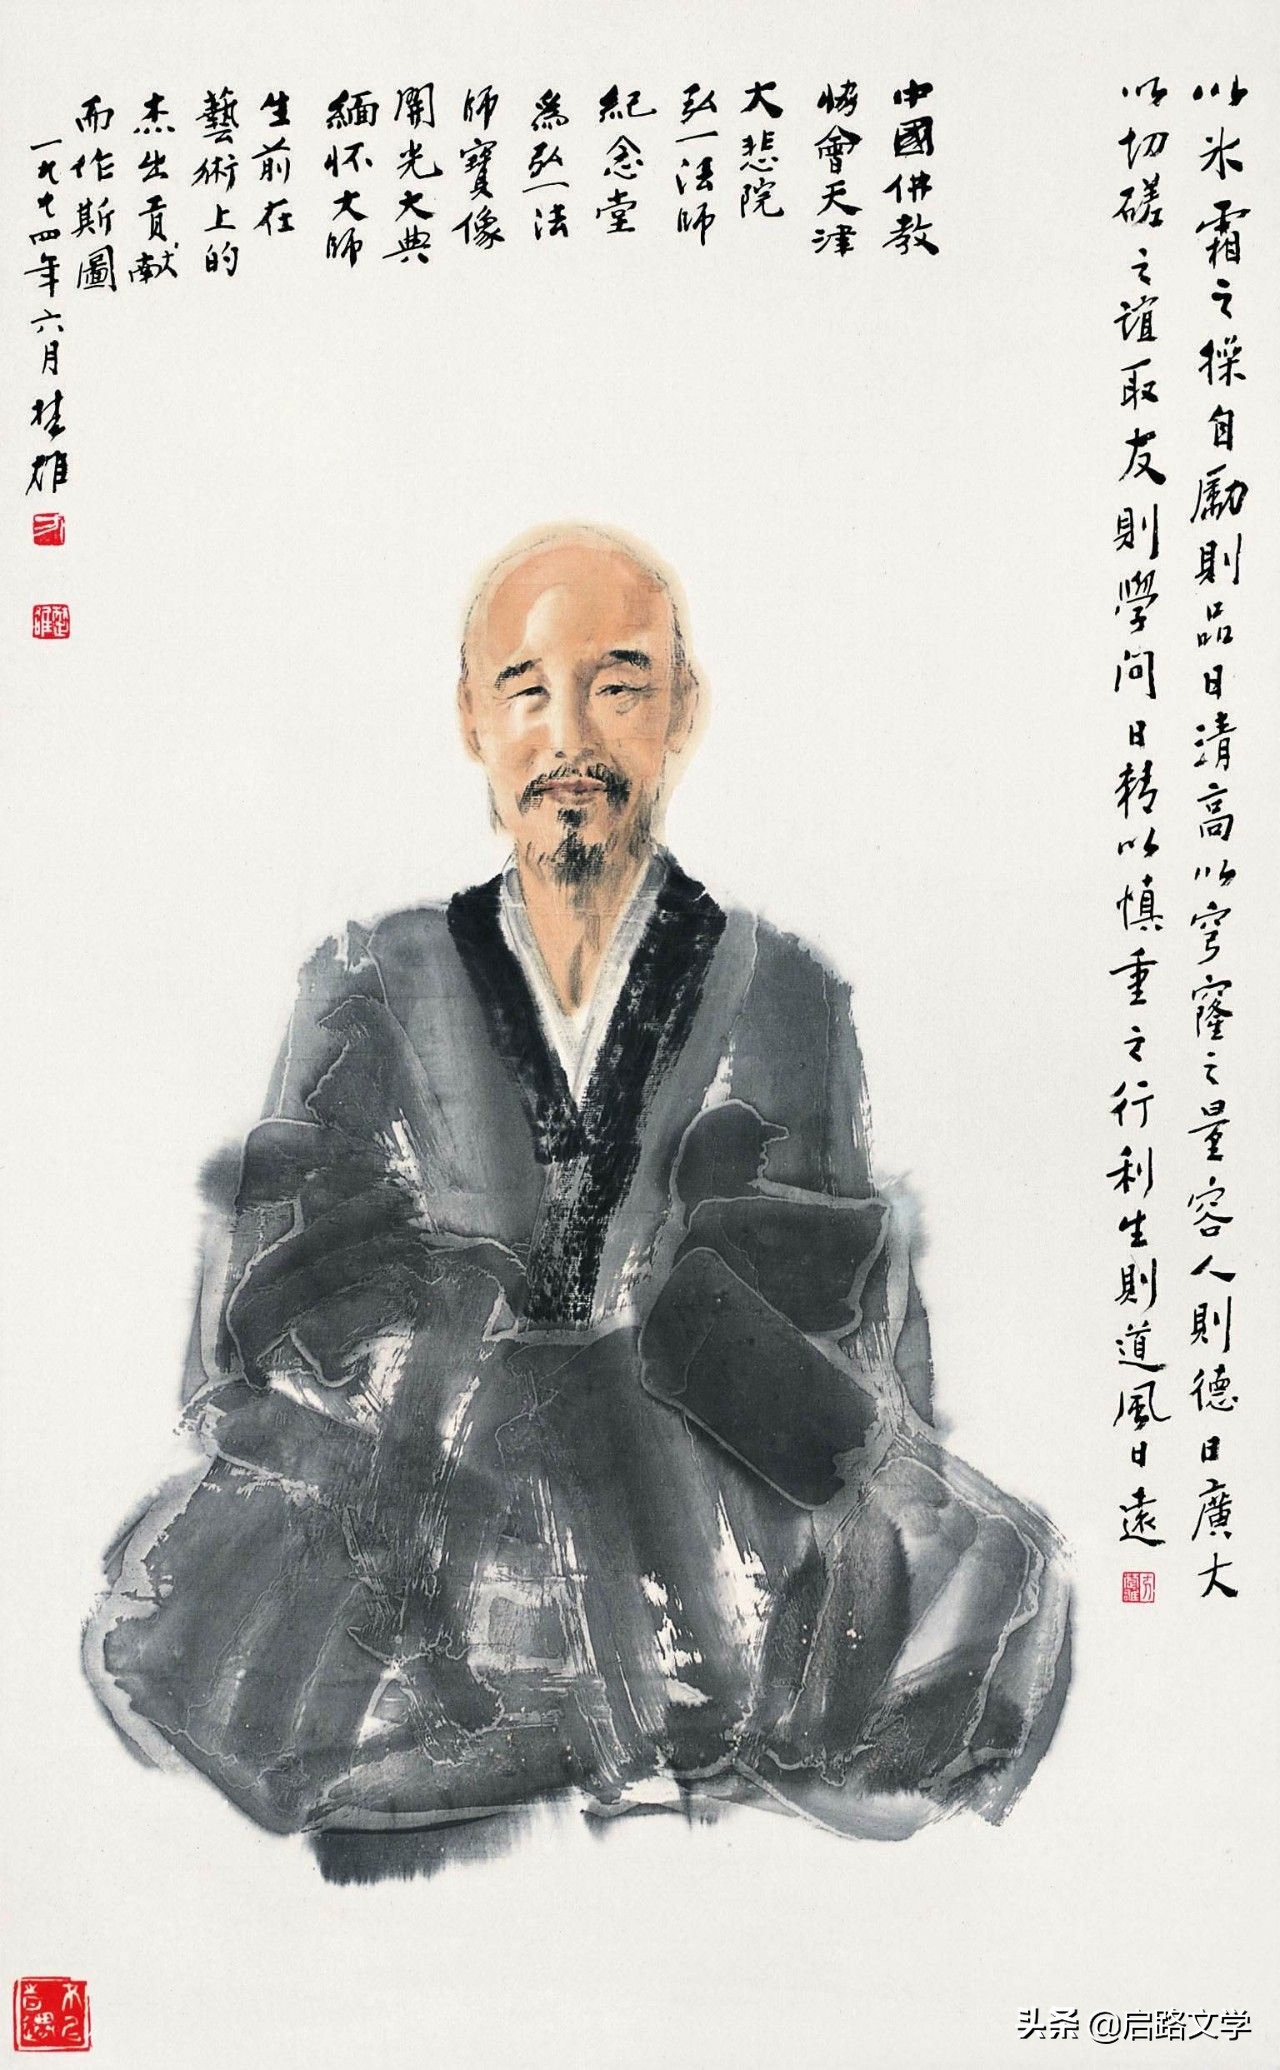 以冰霜之操自勵則品日清高以穹窿之量容人則德日廣大
以切磋之誼取友則學問日精以慎重之行利生則道風日遠
中國佛教
協會天津
大悲院
弘一法師
紀念堂
為弘一法
師寶像
開光大典
緬怀大師
生前在
藝術上的
杰出貢献
而作斯圖
一九九四年六月楚雄
头条 @启路文学